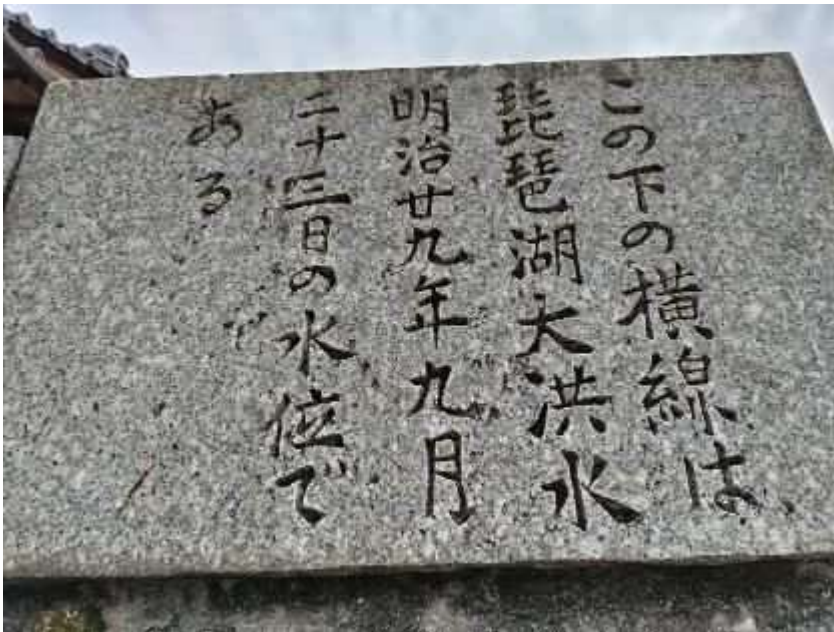 この下の横線は
琵琶湖大洪水
明治廿九年九月
二十三日の水位で
ある